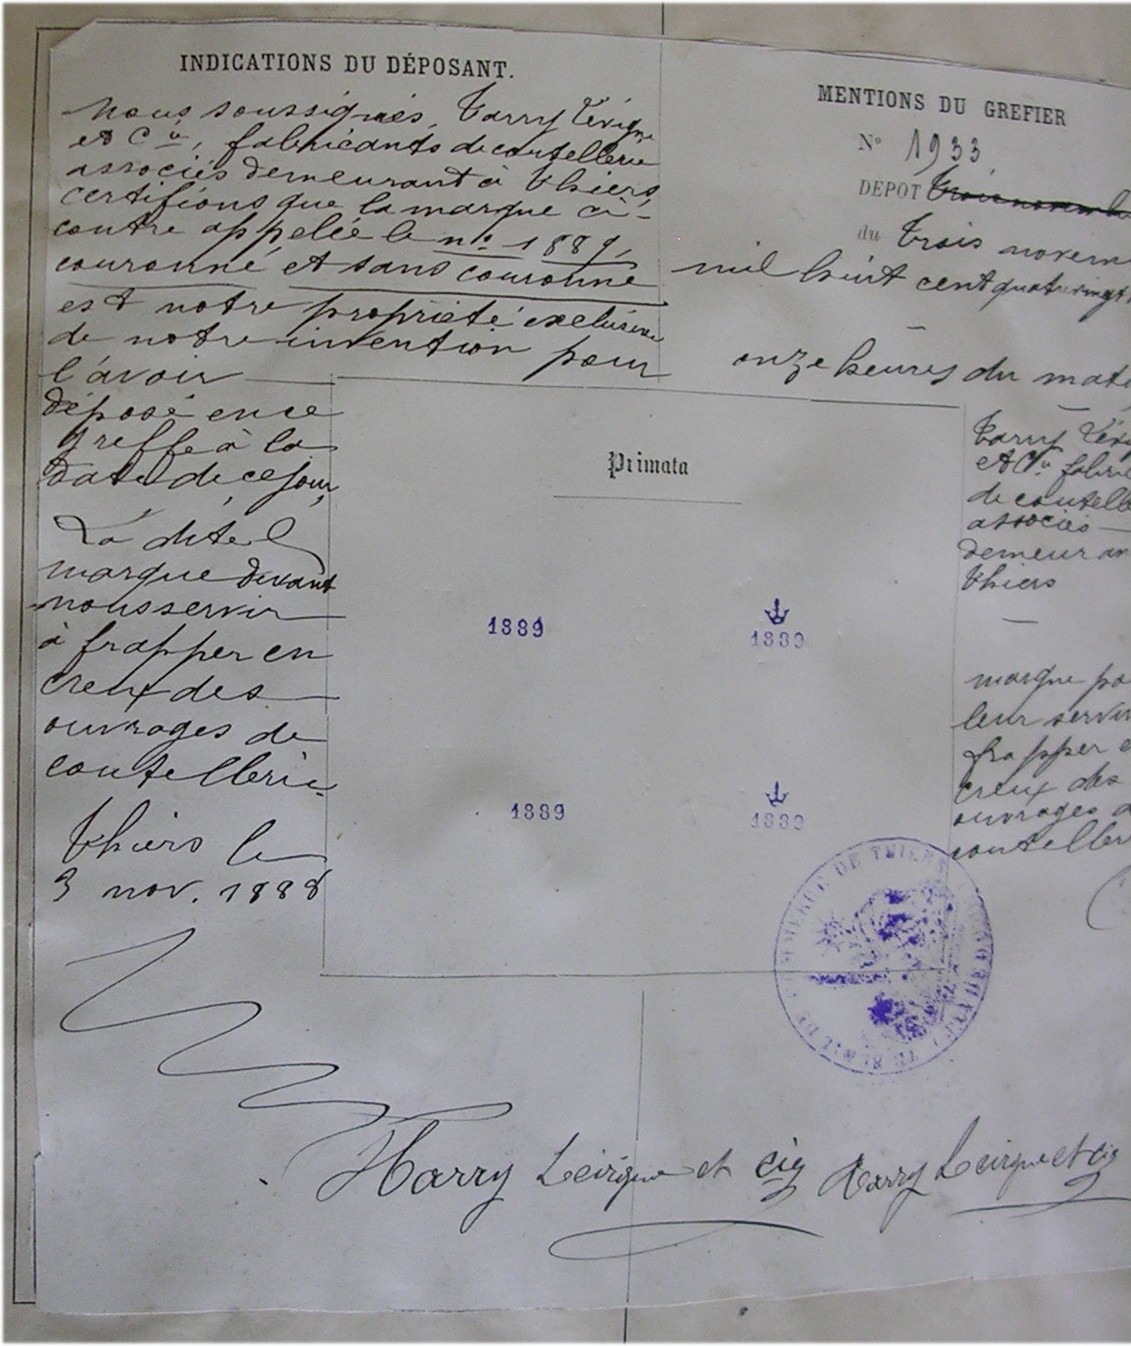 INDICATIONS DU DÉPOSANT.
Nous soussignés, Tarry Lévigne
et Cie, fabricants de coutellerie
associés demeurant à Thiers,
certifions que la marque ci-
contre appelée le no. 1889,
couronné et sans couronne
est notre propriété exclusive
de notre invention pour
l'avoir
déposé en ce
greffe à la
date de ce jour,
La dite
marque devant
nous servir
à frapper en
creux des
ouvrages de
coutellerie
Thiers le
3 nov. 1888
MENTIONS DU GREFIER
No 1933
DÉPOT
du trois novem
mil huit cent quatrevingt
onze heures du mati
Tarry Lévi
et Cie fabri
de coutelle
associés
demeuran
Thiers
marque po
leur servir
frapper e
creux des
ouvrages d
coutelleri
Primata
1889
1889
1889
1889
Tarry Leivigne et Cie Tarry Leivigne et Cie